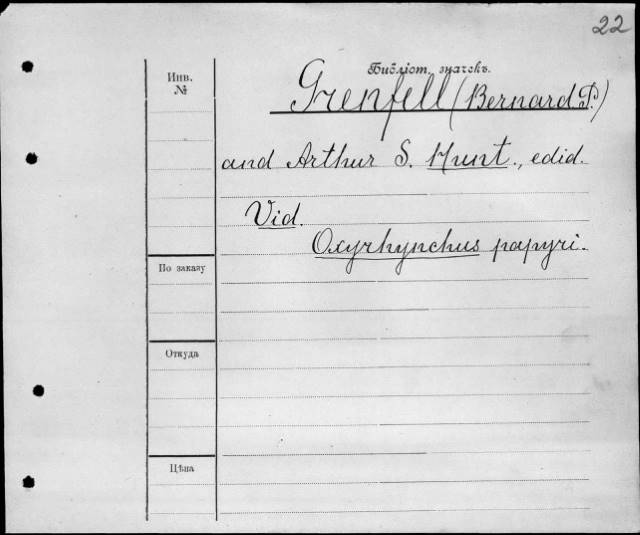 22
Библіот. значекъ.
Инв.
№
Grenfell (Bernard P.)
and Arthur S. Hunt., edid.
Vid.
Oxyrhynchus papyri.
По заказу
Откуда
Цѣна